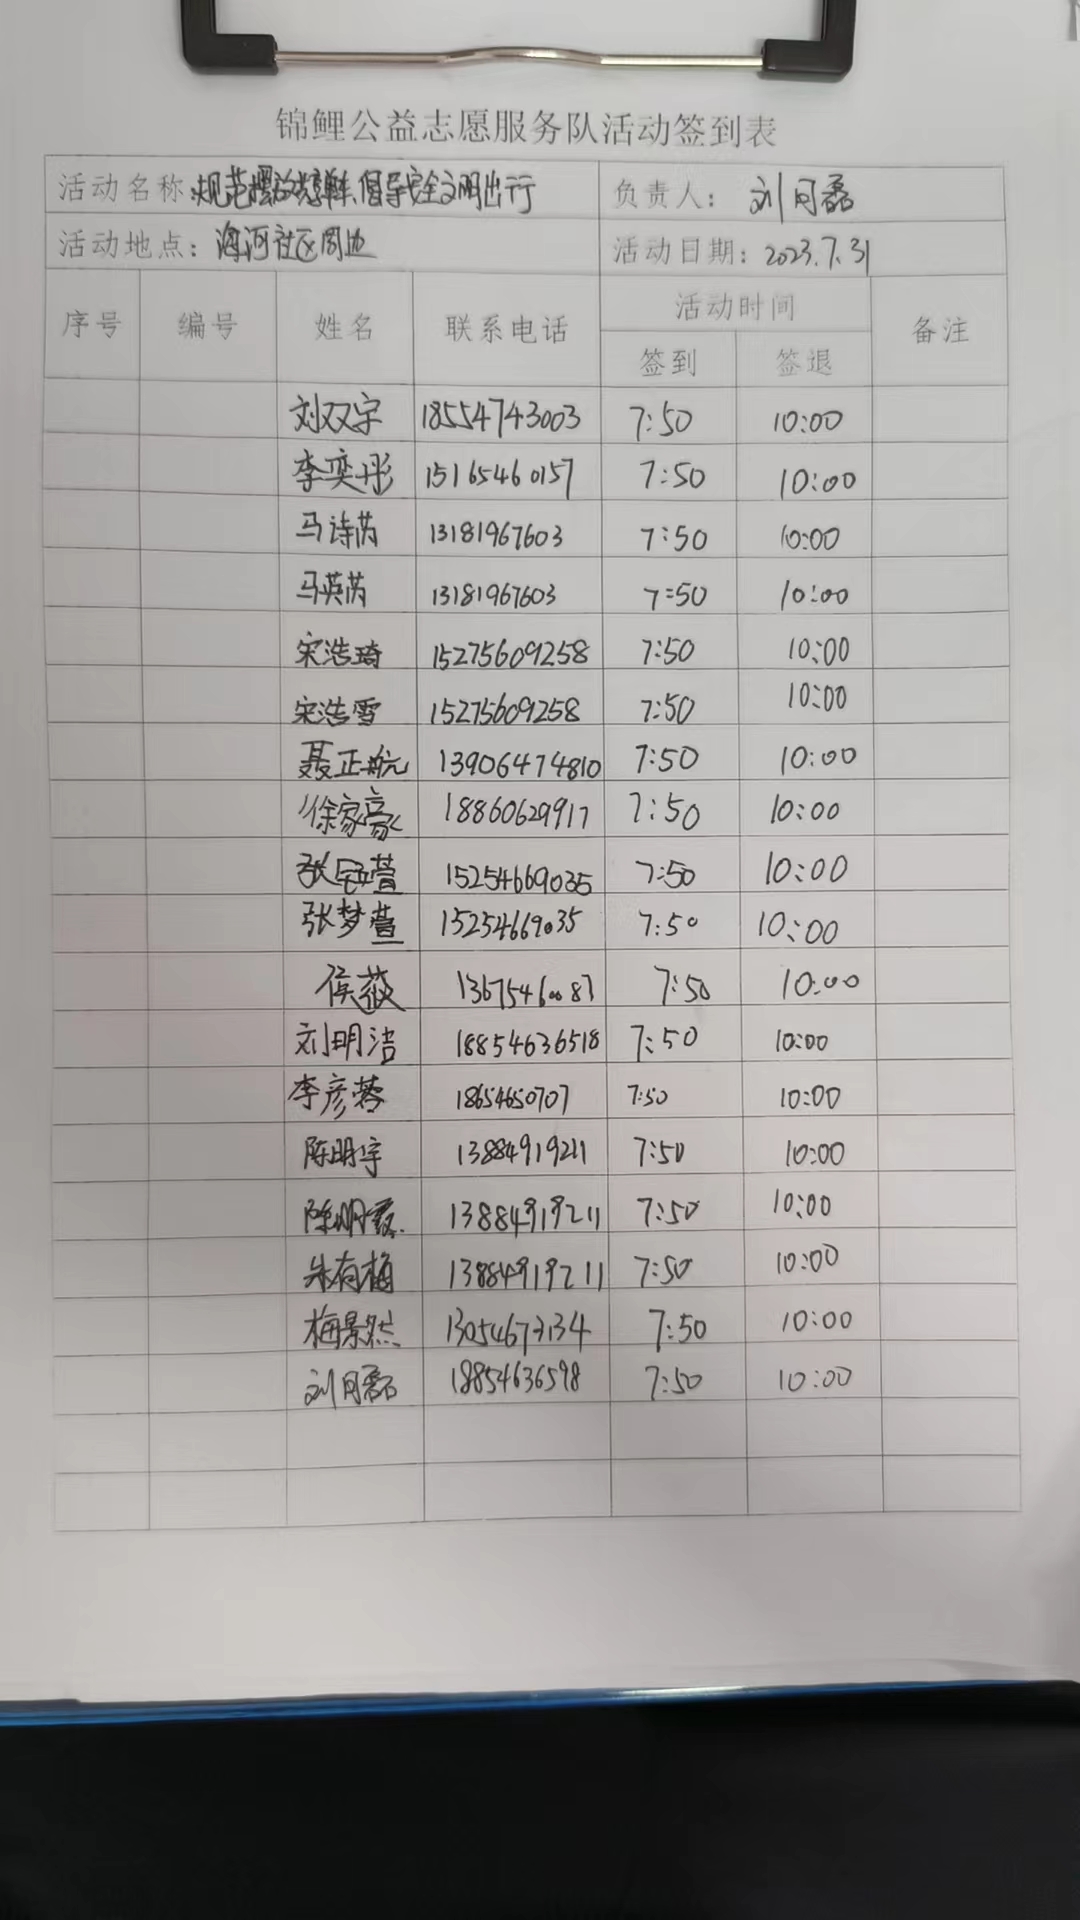 锦鲤公益志愿服务队活动签到表
活动名称：规范摆放单车、倡导安全文明出行 负责人：刘月磊
活动地点：海河社区周边 活动日期：2023.7.31
序号 编号 姓名 联系电话 活动时间 备注
签到 签退
刘双宇 18554743003 7:50 10:00
李奕彤 15165460157 7:50 10:00
马诗芮 13181967603 7:50 10:00
马英芮 13181967603 7:50 10:00
宋浩琦 15275609258 7:50 10:00
宋浩雪 15275609258 7:50 10:00
聂正航 13906474810 7:50 10:00
徐家豪 18860629917 7:50 10:00
张钰萱 15254669035 7:50 10:00
张梦萱 15254669035 7:50 10:00
侯薇 13675460087 7:50 10:00
刘明洁 18854636518 7:50 10:00
李彦蓉 18654650707 7:50 10:00
陈明宇 13884919211 7:50 10:00
陈明霞 13884919211 7:50 10:00
朱有梅 13884919211 7:50 10:00
梅景然 13054673134 7:50 10:00
刘月磊 18854636598 7:50 10:00